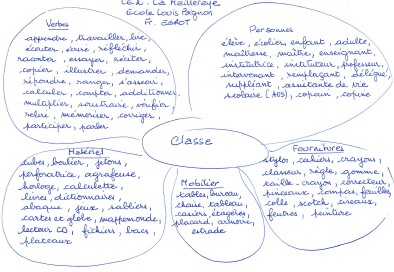 CE2 - La Meilleraye
Ecole Louis Poignon
Fr. EGROT
Verbes
apprendre, travailler, lire,
écouter, écrire, réfléchir,
raconter, essayer, réciter,
copier, illustrer, demander,
répondre, ranger, s'asseoir,
calculer, compter, additionner,
multiplier, soustraire, vérifier,
relire, mémoriser, corriger,
participer, parler
Personnes
élève, écolier, enfant, adulte,
maîtresse, maître, enseignant,
institutrice, instituteur, professeur,
intervenant, remplaçant, délégué,
suppléant, assistante de vie
scolaire (AVS), copain, copine
Classe
Matériel
cubes, boulier, jetons,
perforatrice, agrafeuse,
horloge, calculette,
livres, dictionnaires,
abaque, jeux, sabliers,
cartes et globe, mappemonde,
lecteur CD, fichiers, bacs,
plateaux
Mobilier
tables, bureau,
chaise, tableau,
casiers, étagères,
placard, armoire,
estrade
Fournitures
stylos, cahiers, crayons,
classeur, règle, gomme,
taille-crayon, correcteur,
pinceaux, compas, feuilles,
colle, scotch, ciseaux,
feutres, peinture